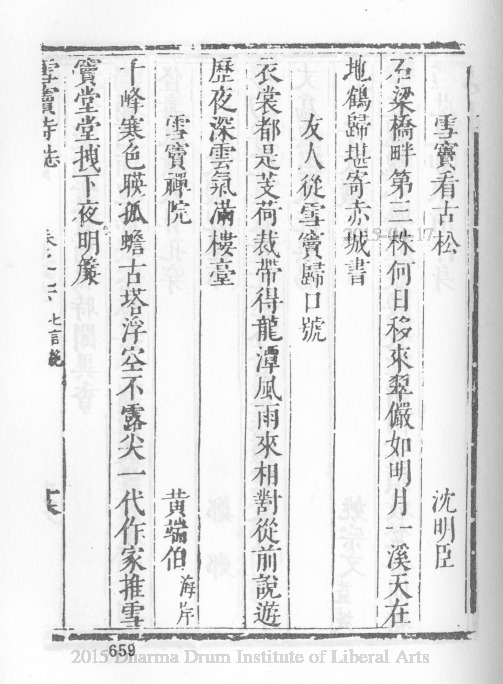 雪竇看古松　沈明臣
石梁橋畔第三株何日移來翠儼如明月一溪天在
地鶴歸堪寄赤城書
友人從雪竇歸口號
衣裳都是芰荷裁帶得龍潭風雨來相對從前說遊
歷夜深雲氣滿樓臺
雪竇禪院　黃端伯海岸
千峰寒色暎孤蟾古塔浮空不露尖一代作家推雪
竇堂堂拽下夜明簾
雪竇寺誌　七言絶
2015-04-17
659
2015 Dharma Drum Institute of Liberal Arts